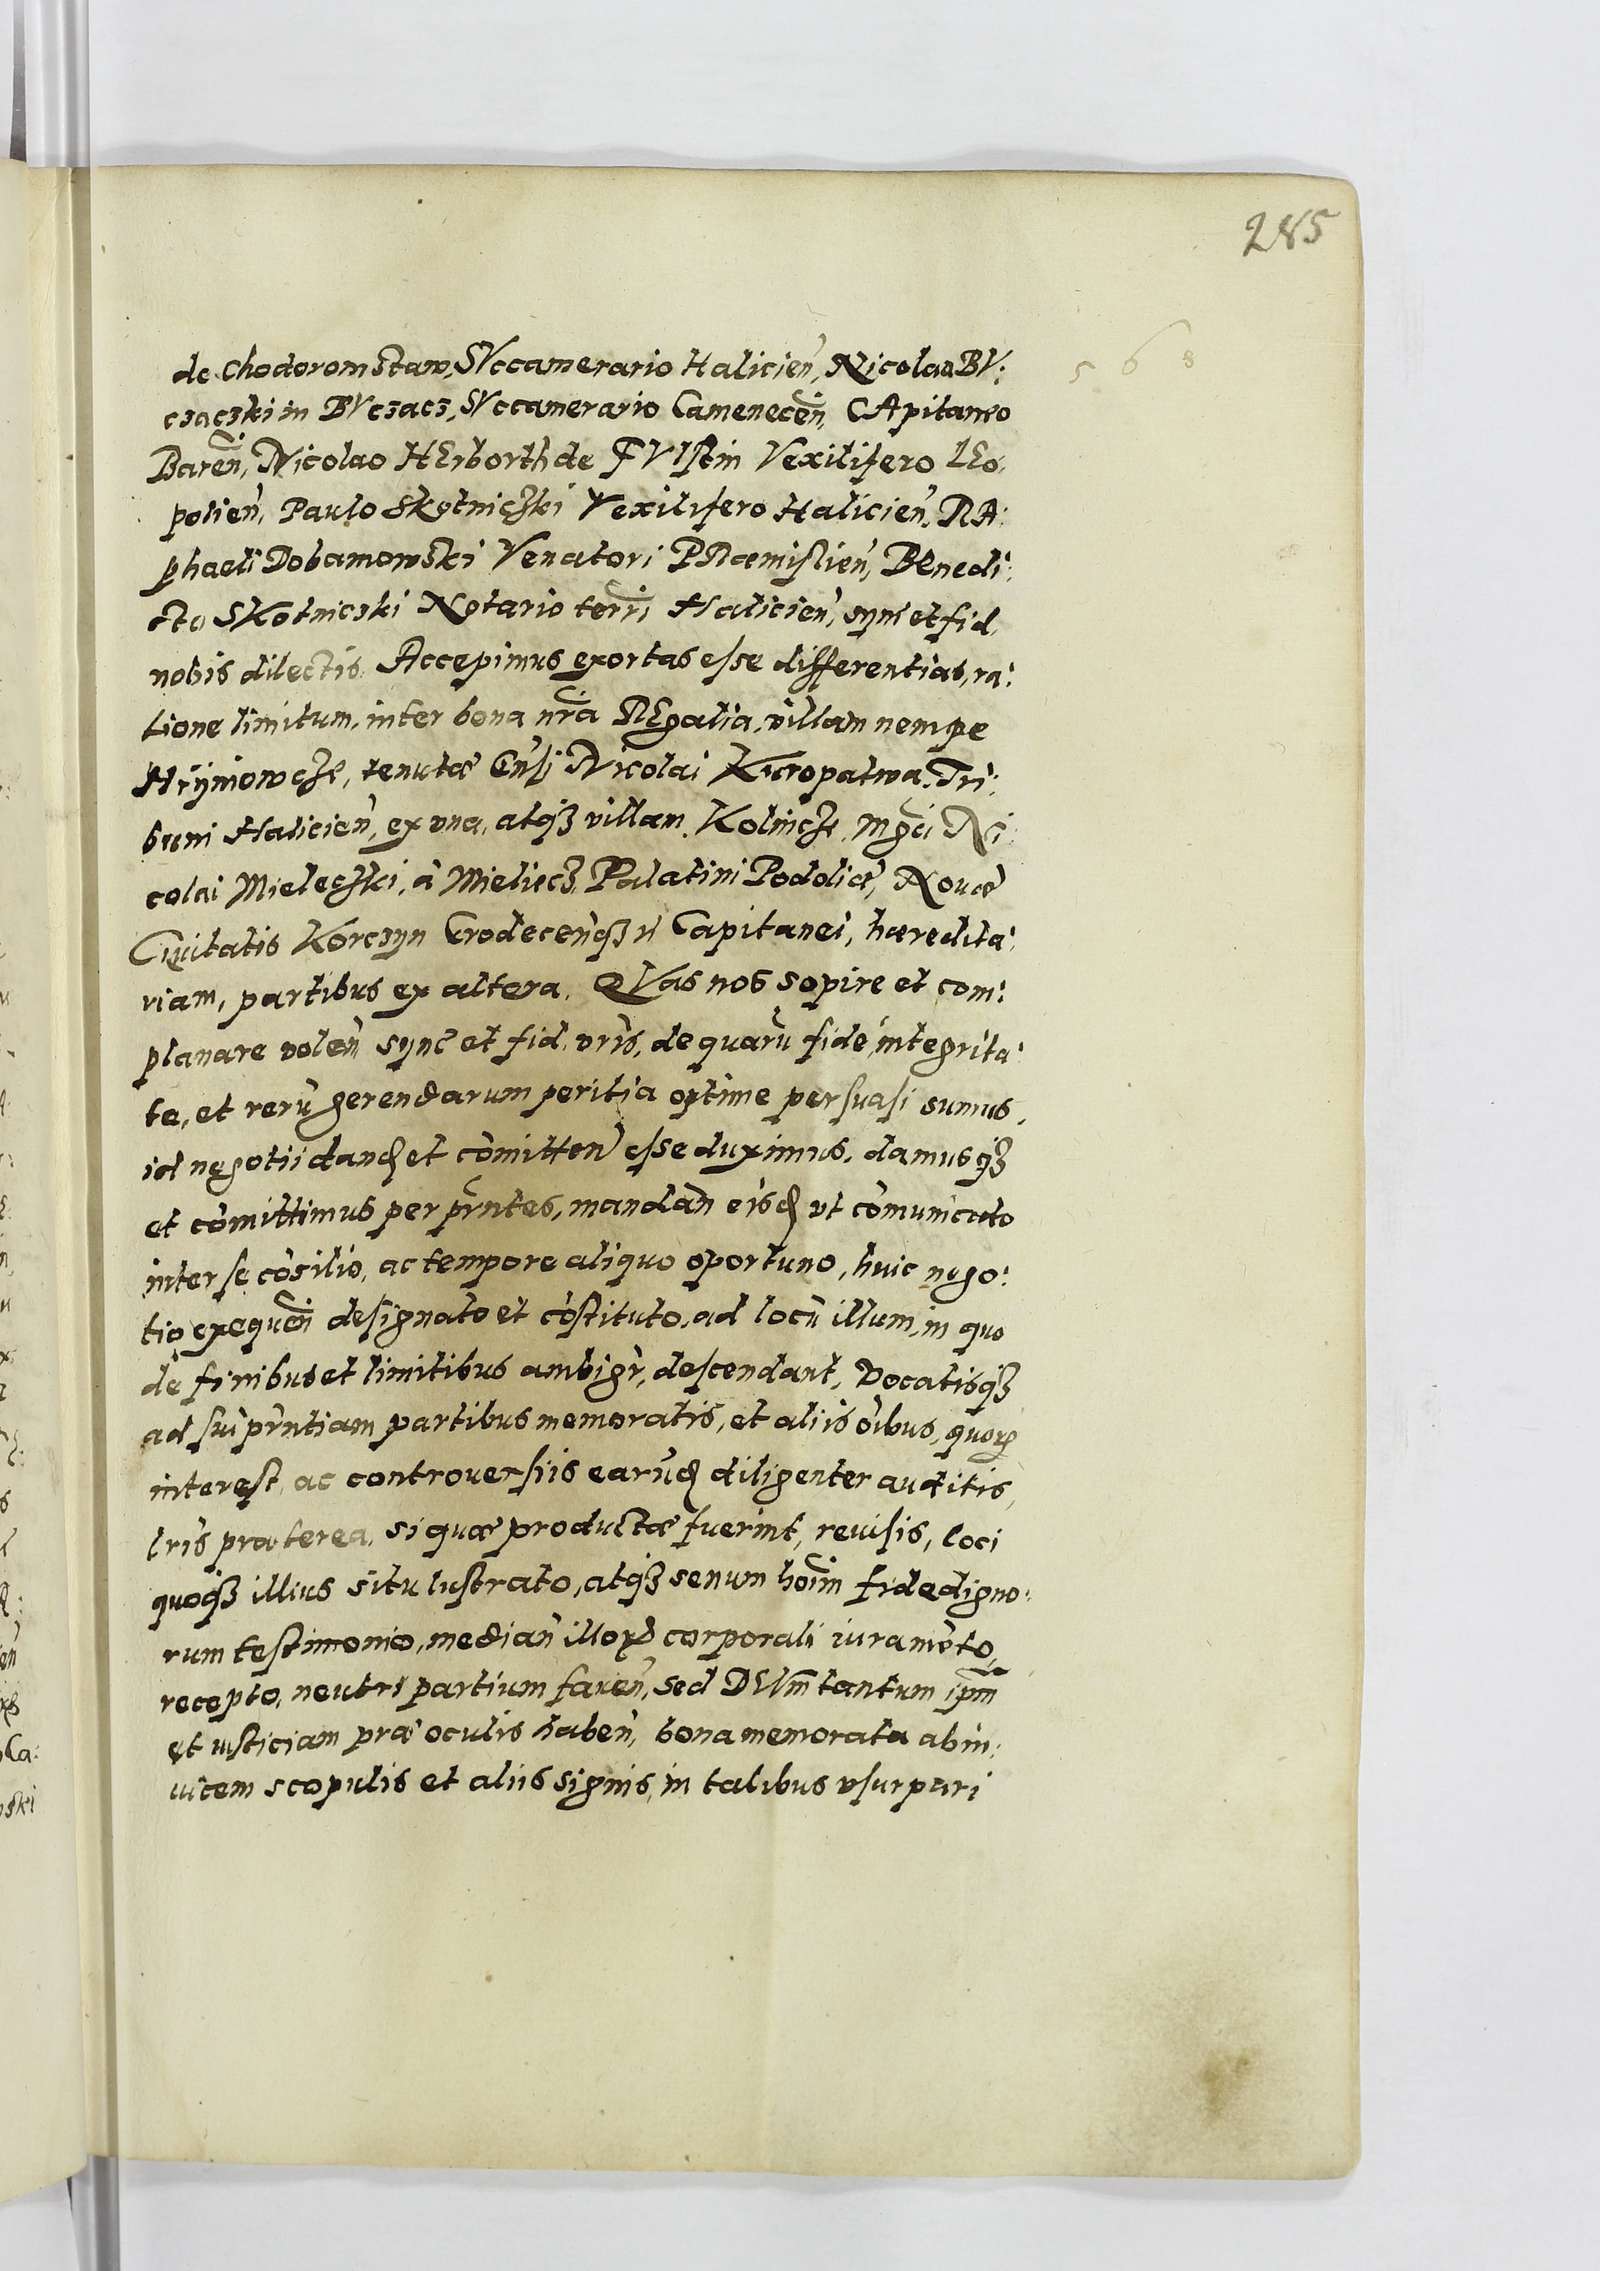 285
568
de Chodoromstaw, SVccamerario Halicień, Nicolao BV:
csacski in BVcsacs, SVccamerario Cameneceń, CApitaneo
Bareń, Nicolao HErborth de FVlstin Vexilifero LEo,
polień, Paulo Skotnichski Vexilifero Halicień, RA:
phaeli Dobamowski Venatori PRæmislień, BEnedi:
cto SKotnicski Notario terrī Halicień, synč et fid.
nobis dilectis. Accepimus exortas esse differentias, ra:
tione limitum, inter bona nrā REgalia, villam nempe
Hrijniowcze, tenutæ Gńsi Nicolai Kuropatwa, Tri:
buni Halicień, ex vna, atqȝ villam Kolincze, Mgcī Ni:
colai Mieleczki, à Mieliecz, Palatini Podoliæ, Nouæ
Ciuitatis Korczyn Grodeceńqȝ Capitanei, hæredita:
riam, partibus ex altera. QVas nos sopire et com:
planare voleń sync̄ et fid. vr̃is, de quarū fide, integrita:
te, et rerū gerendarum peritia optime persuasi sumus,
id negotii dand et cōmitteń esse duximus, damusqȝ
et cōmittimus per pr̄ntes, mandań eisd vt cōmunicato
inter se cōsilio, ac tempore aliquo oportuno, huic nego:
tio exequeń designato et cōstituto, ad locū illum, in quo
de finibus et limitibus ambigr̀, descendant, Vocatisqȝ
ad sui pr̄ntiam partibus memoratis, et aliis oībus, quorꝝ
interest, ac controuersiis earūd diligenter auditis,
lr̄is præterea, si quæ productæ fuerint, reuisis, loci
quoqȝ illius situ lustrato, atqȝ senum hoīm fidedigno:
rum testimonio, mediań illorꝝ corporali iuramēto,
recepto, neutri partium faueń, sed DEVm̄ tantum ipm̄
et iusticiam præ oculis habeń, bona memorata ab in:
uicem scopulis et aliis signis, in talibus vsurpari